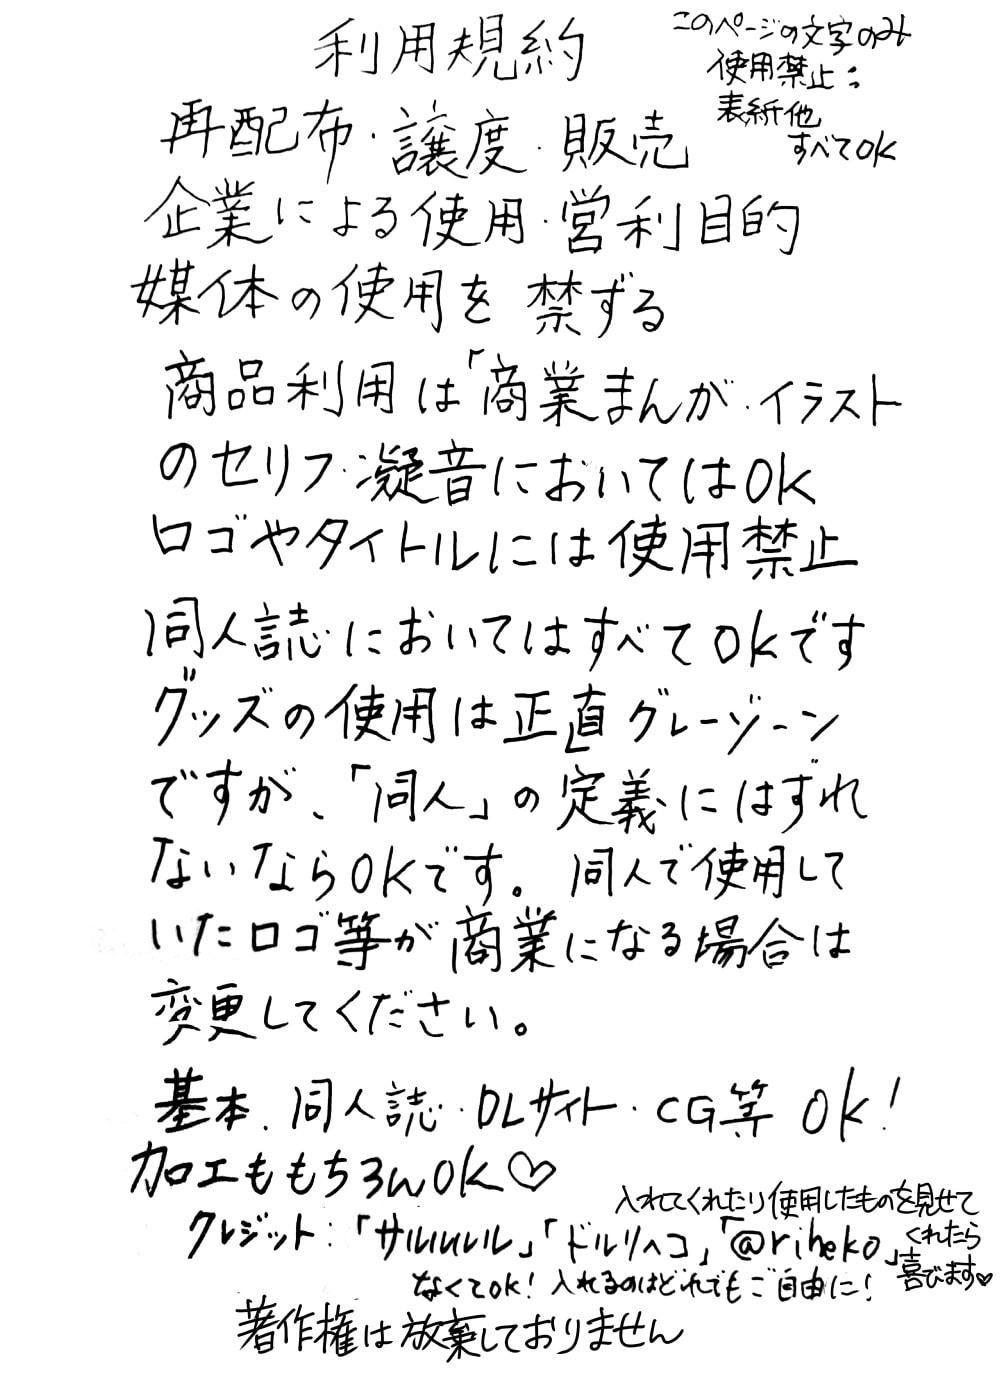 利用規約
このページの文字のみ
使用禁止:
表紙他
すべてOK
再配布・譲度・販売
企業による使用・営利目的
媒体の使用を禁ずる
商品利用は「商業まんが・イラスト
のセリフ・凝音においてはOK
ロゴやタイトルには使用禁止
同人誌においてはすべてOKです
グッズの使用は正直グレーゾーン
ですが、「同人」の定義にはずれ
ないならOKです。同人で使用して
いたロゴ等が商業になる場合は
変更してください。
基本、同人誌・DLサイト・CG等 OK!
加工ももちろんOK♡
入れてくれたり使用したものを見せて
くれたら
喜びます♡
クレジット:「サルルルル」「ドルリヘコ」「@riheko」
なくてOK!入れるのはどれでもご自由に!
著作権は放棄しておりません